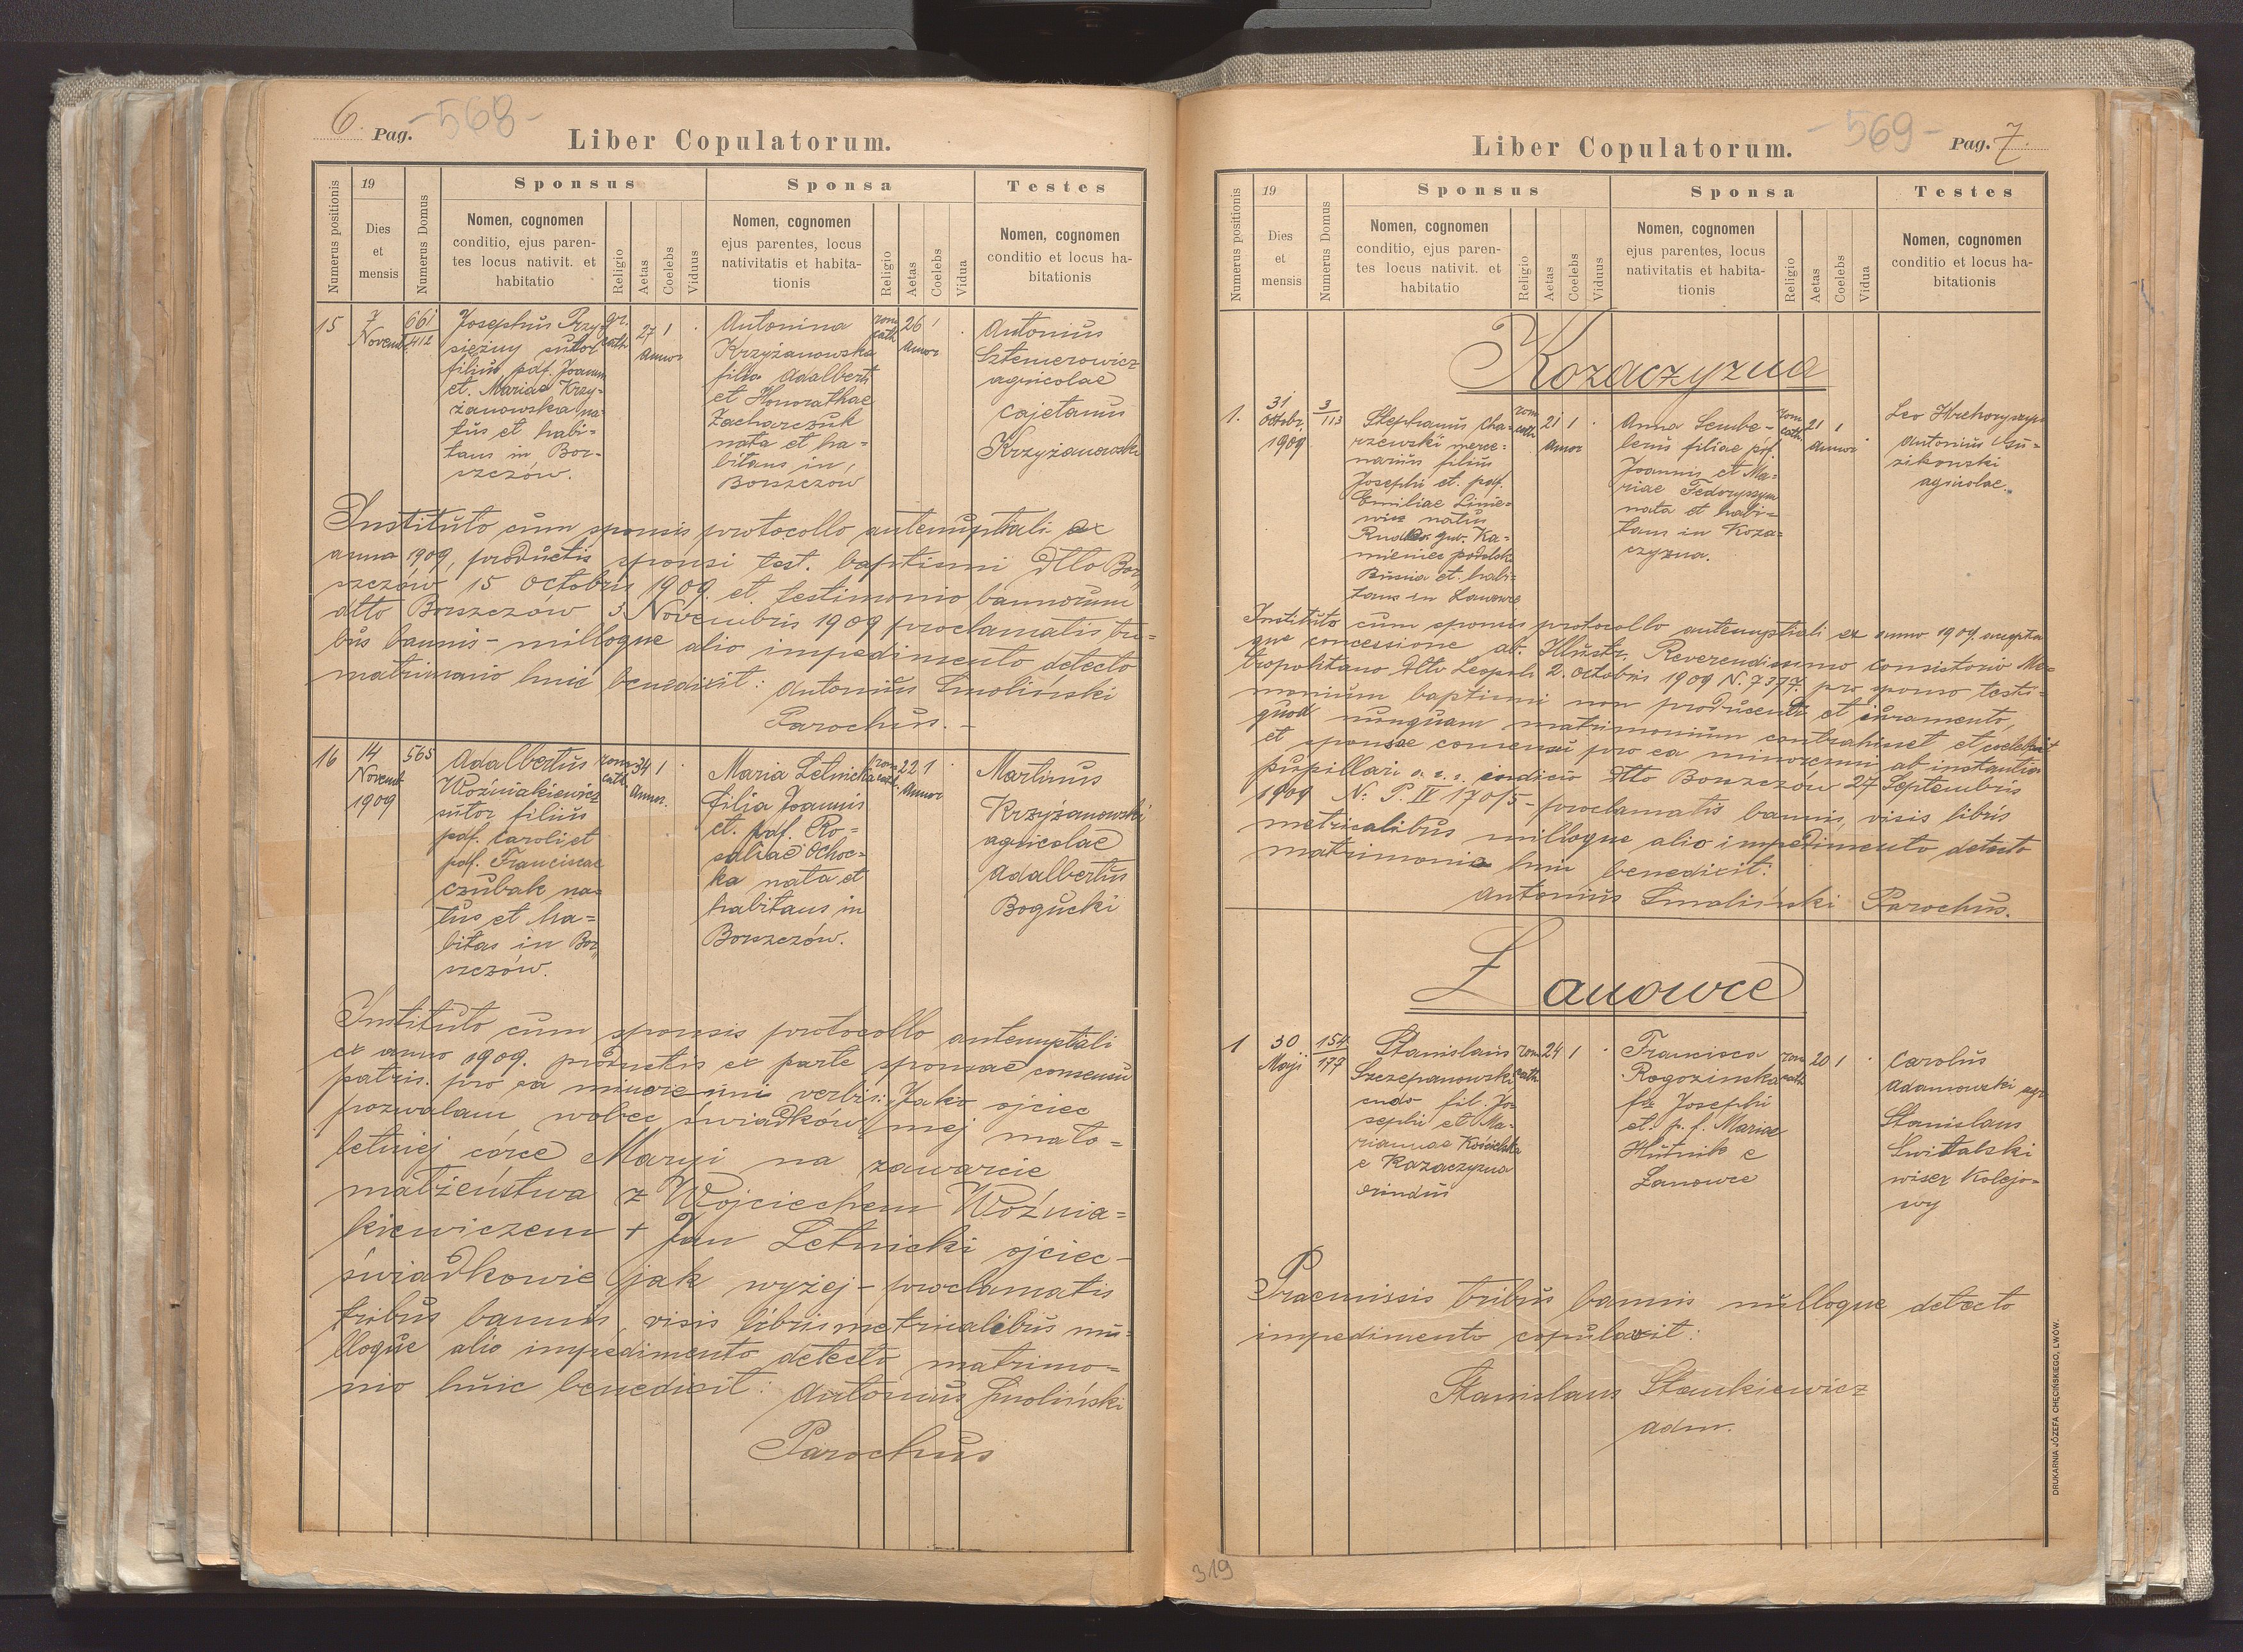 6. Pag. -568-
Liber Copulatorum.
Numerus positionis
19
Dies
et
mensis
Numerus Domus
Sponsus
Nomen, cognomen
conditio, ejus paren-
tes locus nativit. et
habitatio
Religio
Aetas
Coelebs
Viduus
Sponsa
Nomen, cognomen
ejus parentes, locus
nativitatis et habita-
tionis
Religio
Aetas
Coelebs
Vidua
Testes
Nomen, cognomen
conditio et locus ha-
bitationis
15
7
Novemb.
661
412
Josephus Przy-
siężny sutor
filius pdf. Joannis
et. Mariae Krzy-
żanowska na-
tus et habi-
tans in Bor-
szczów.
gr.
cath
27
annor
1
Antonina
Krzyżanowska
filia Adalberti
et Honorathae
Zacharczuk
nata et ha-
bitans in
Borszczów
rom
cath
26
annor
1
Antonius
Sztemerowicz
agricolae
Cajetanus
Krzyżanowski
Instituto cum sponsis protocollo antenuptiali ex
anno 1909, productis sponsi test. baptismi dtto Bor„
szczów 15 Octobris 1909. et testimonio bannorum
dtto Borszczów 3 Novembris 1909 proclamatis tri=
bus bannis - nulloque alio impedimento detecto
matrimonio huic benedixit: Antonius Smoliński
Parochus.-
16
14
Novemb
1909
565
Adalbertus
Woźniakiewicz
sutor filius
pdf. Caroli et
pdf. Franciscae
Czubak na=
tus et ha=
bitas in Bor„
szczów.
rom
cath.
34
annor.
1
Maria Letnicka
filia Joannis
et. pdf. Ro-
saliae Ochoc-
ka nata et
habitans in
Borszczów.
rom
cath.
22
annor
1
Martinus
Krzyżanowski
agricolae
Adalbertus
Bogucki
Instituto cum sponsis protocollo antenuptiali
ex anno 1909. productis ex parte sponsae consensu
patris. pro ea minorenni verbis: Jako ojciec
pozwalam wobec świadków mej mało=
letniej córce Maryi na zawarcie
małżeństwa z Wojciechem Woźnia=
kiewiczem + Jan Letnicki ojciec-
świadkowie jak wyżej - proclamatis
tribus bannis, visis libris metricalibus nu=
lloque alio impedimento detecto matrimo=
nio huic benedixit: Antonius Smoliński
Parochus
-569- Pag. 7.
Liber Copulatorum.
Numerus positionis
19
Dies
et
mensis
Numerus Domus
Sponsus
Nomen, cognomen
conditio, ejus paren-
tes locus nativit. et
habitatio
Religio
Aetas
Coelebs
Viduus
Sponsa
Nomen, cognomen
ejus parentes, locus
nativitatis et habita-
tionis
Religio
Aetas
Coelebs
Vidua
Testes
Nomen, cognomen
conditio et locus ha-
bitationis
Kozaczyzna
1.
31
Octobr.
1909
3
113
Stephanus Cha-
rzewski merce=
narius filius
Josephi et. pdf.
Emiliae Linie-
wicz natus
gub. Ka=
mieniec podolsk
Russia et. habi=
tans in Łanowce
rom
cath
21
annor
1
Anna Sembe-
lerus filiae pdf.
Joannis et Ma=
riae Fedoryszyn
nata et habi=
tans in Koza=
czyzna.
rom
cath.
21
annor
1
Leo
Antonius Gu=
zikowski
agricolae.
Instituto cum sponsis protocollo antenuptiali ex anno 1909. accepta
que concessione ab. Illustr. Reverendissimo Consistorio Me=
tropolitano dtto Leopoli 2. Octobris 1909 N. 7377. pro sponso testi=
monium baptismi non producenti et iuramento,
quod nunquam matrimonium contrahisset et coelebs sit
et sponsae consensu pro ea minorenni ab instantia
pupillari c. r. iudicio dtto Borszczów 27 Septembris
1909 N: P. IV 170/5 - proclamatis bannis, visis libris
metricalibus nulloque alio impedimento detecto
matrimonio huic benedixit:
Antonius Smoliński Parochus.
Łanowce
1
30
Maji
154
177
Stanislaus
Szczepanowski
fil. Jo=
sephi et Ma-
riannae Kościelska
e Kozaczyzna
oriundus
rom
cath
24
1
Francisca
Rogozinska
fa Josephi
et. p. f. Mariae
Hutnik e
Łanowce
rom
cath
20
1
Carolus
Adamowski agr
Stanislaus
Switalski
wiser kolejo=
wy
Praemissis tribus bannis nulloque detecto
impedimento copulavit:
Stanislaus Stankiewicz
adm.
DRUKARNIA JÓZEFA CHĘCIŃSKIEGO, LWÓW.
319